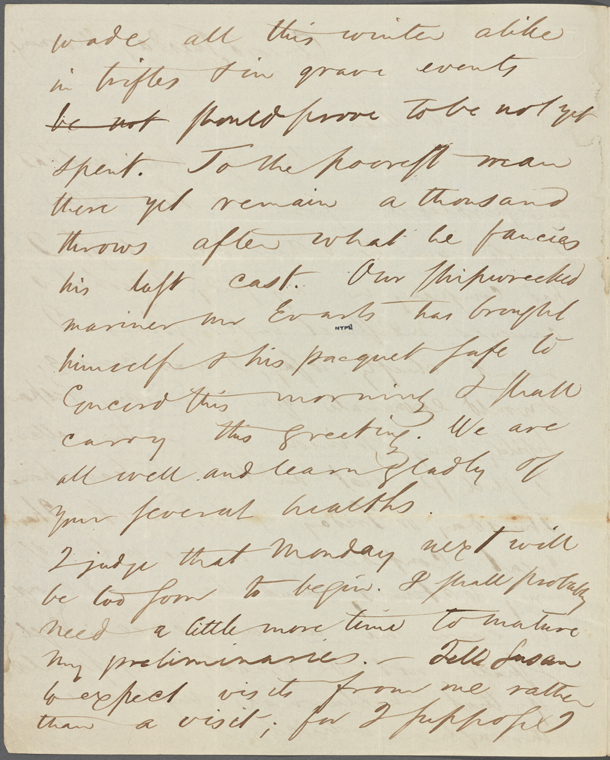 wade all this winter alike
in trifles & in grave events
be not should prove to be not yet
spent. To the poorest man
there yet remain a thousand
throws after what he fancies
his last cast. Our shipwrecked
mariner Mr Evarts has brought
NYPL
himself & his pacquet safe to
Concord this morning & shall
carry this greeting. We are
all well and learn gladly of
your several healths.
I judge that Monday next will
be too soon to begin. I shall probably
need a little more time to mature
my preliminaries. — Tell Susan
to expect visits from me rather
than a visit; for I suppose I